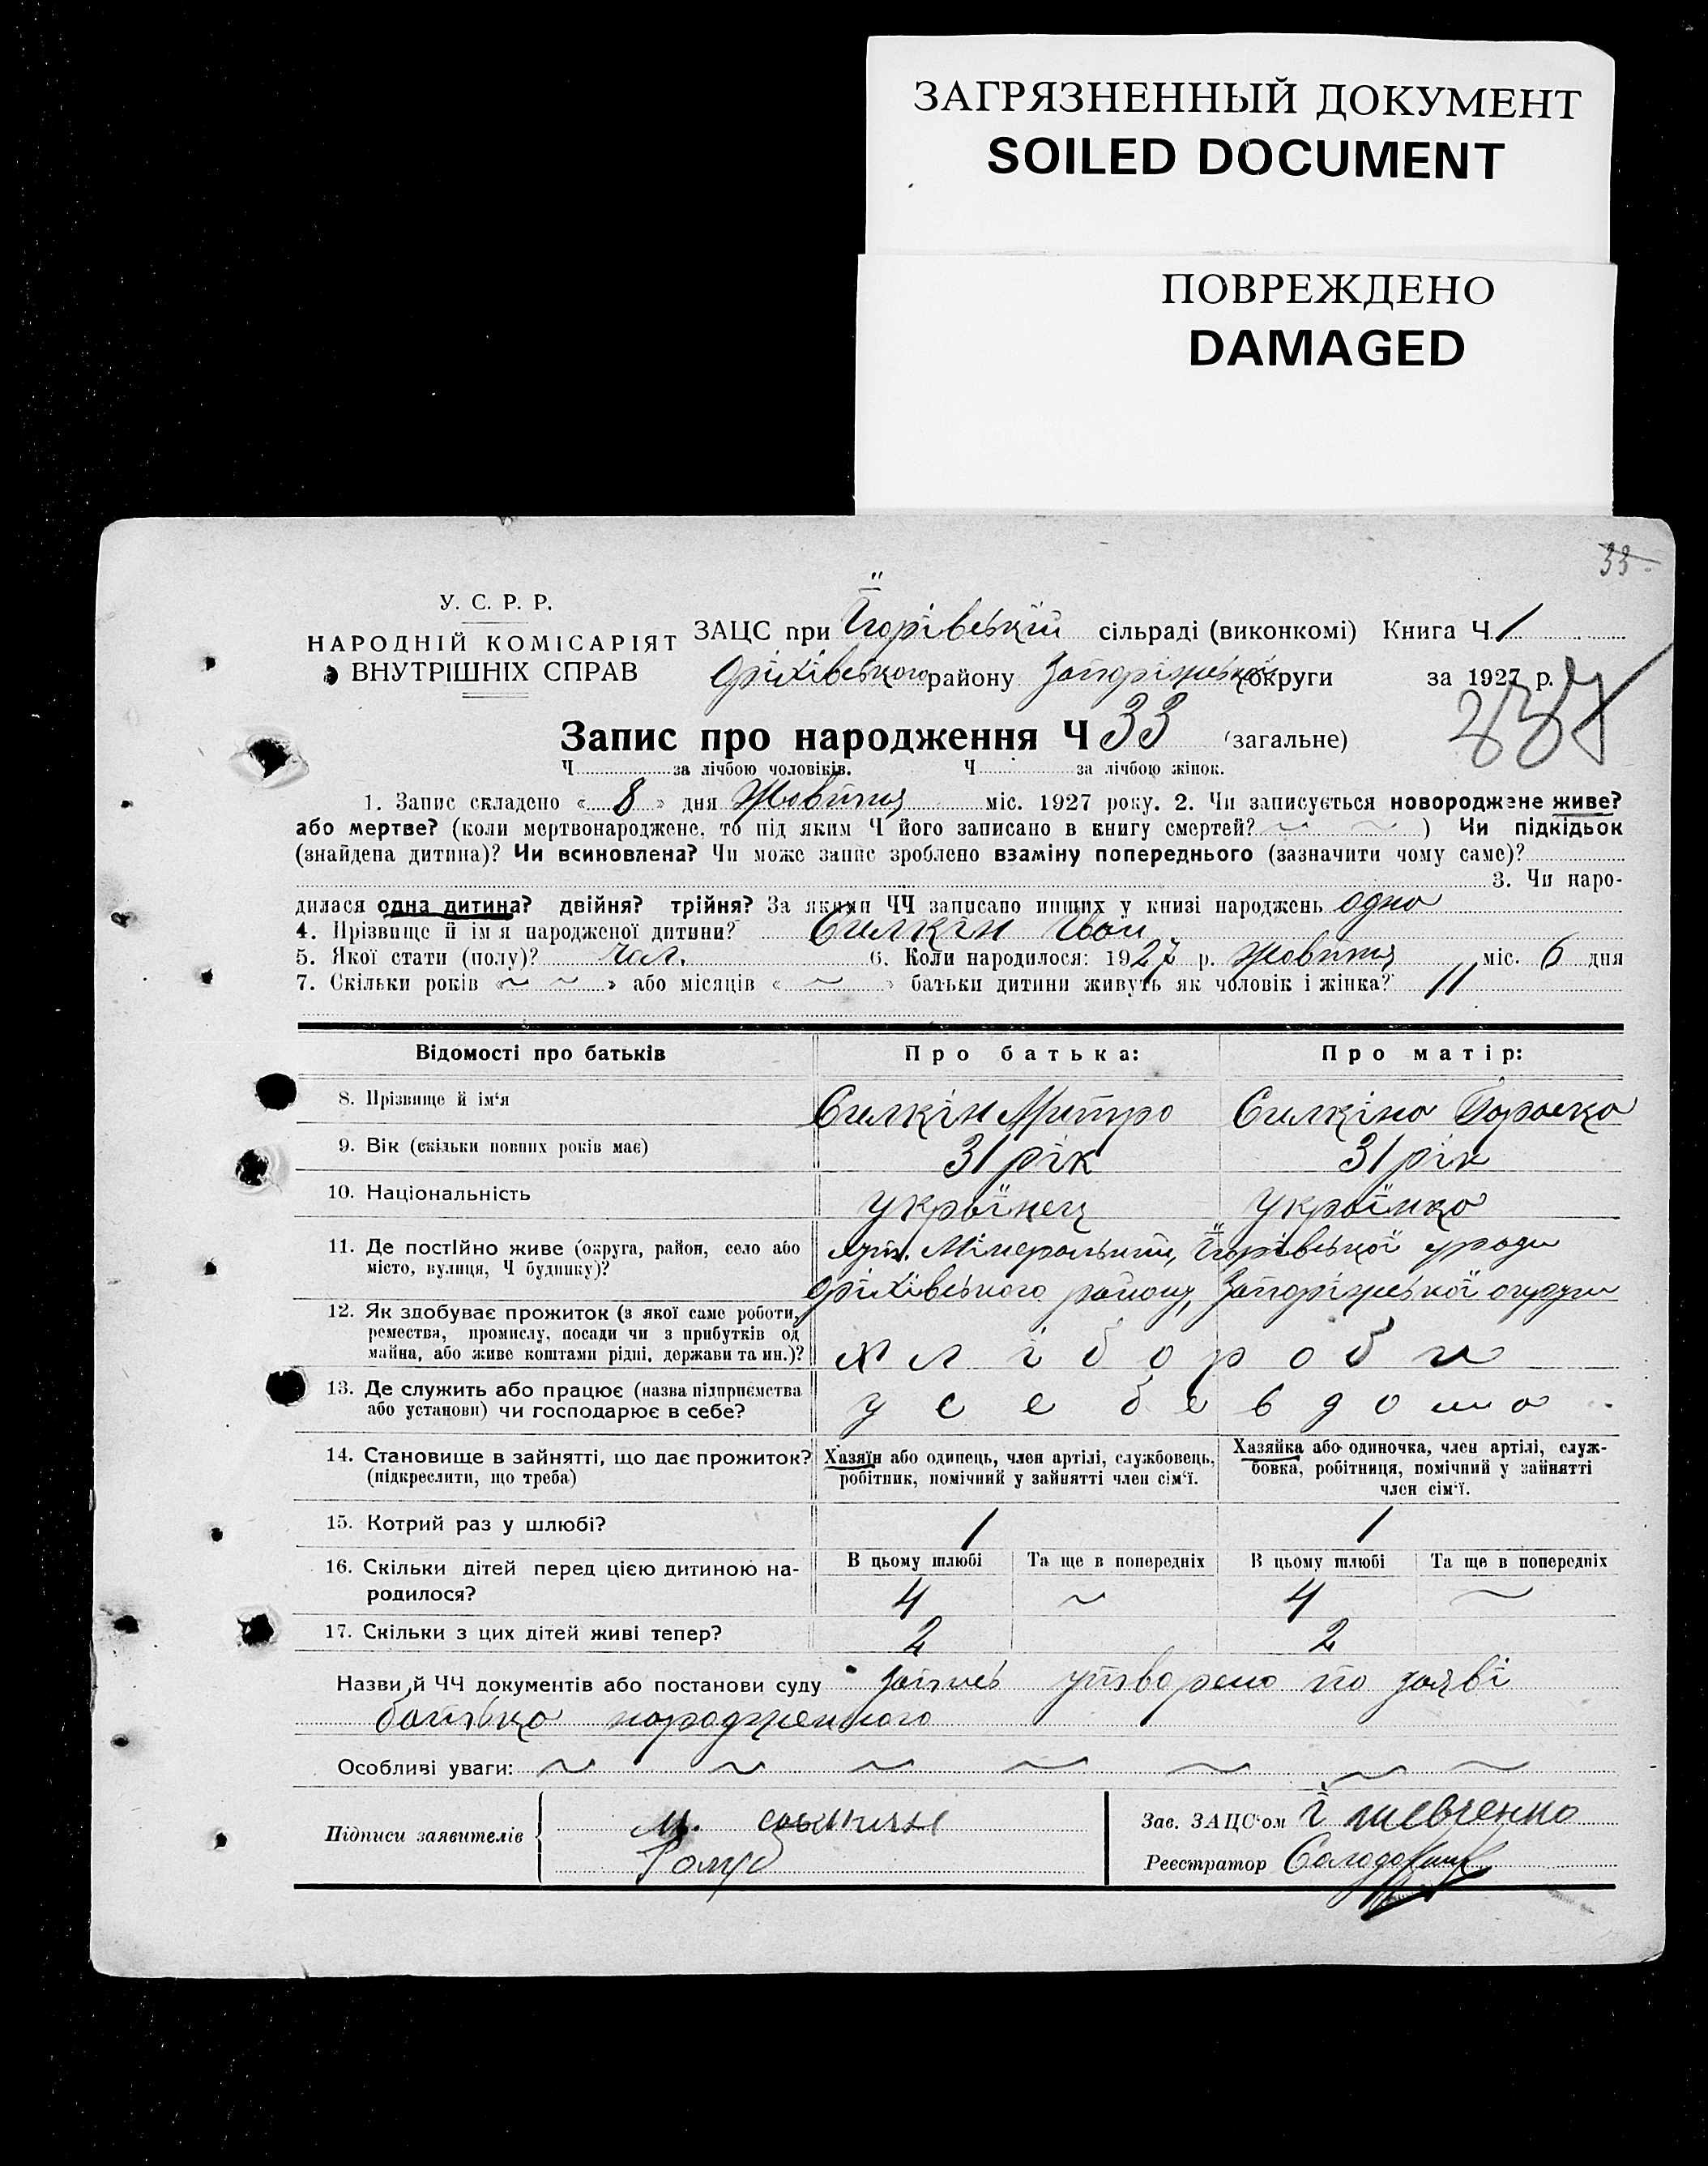 ЗАГРЯЗНЕННЫЙ ДОКУМЕНТ
SOILED DOCUMENT
ПОВРЕЖДЕНО
DAMAGED
33
У. С. Р. Р.
НАРОДНІЙ КОМІСАРІЯТ
ВНУТРІШНІХ СПРАВ
ЗАЦС при Їгорівській сільраді (виконкомі) Книга Ч. 1
Оріхівського району Запоріжської округи за 1927 р.
Запис про народження Ч 33 (загальне)
Ч. за лічбою чоловіків. Ч. за лічбою жінок.
1. Запис складено « 8 » дня Жовтня міс. 1927 року. 2. Чи записується новороджене живе?
або мертве? (коли мертвонароджене, то під яким Ч його записано в книгу смертей? ~ ~ ) Чи підкідьок
(знайдена дитина)? Чи всиновлена? Чи може запис зроблено взаміну попереднього (зазначити чому саме)?
3. Чи наро-
дилася одна дитина? двійня? трійня? За якими ЧЧ записано инших у книзі народжень одно
4. Прізвище й ім'я народженої дитини? Силкін Іван
5. Якої стати (полу)? чол. 6. Коли народилося: 1927 р. Жовтня міс. 6 дня
7. Скільки років «~ ~» або місяців « ~ » батьки дитини живуть як чоловік і жінка? 11
Відомості про батьків Про батька: Про матір:
8. Прізвище й ім'я Силкін Митро Силкіна
9. Вік (скільки повних років має) 31 рік 31 рік
10. Національність украінец украінка
11. Де постійно живе (округа, район, село або хут. Мінеральний, Їгорівської
місто, вулиця, Ч будинку)? Оріхівського району, Запоріжської округи
12. Як здобуває прожиток (з якої саме роботи,
ремества, промислу, посади чи з прибутків од
майна, або живе коштами рідні, держави та ин.)? хліброби
13. Де служить або працює (назва підприємства
або установи) чи господарює в себе? у себе вдома
14. Становище в зайнятті, що дає прожиток? Хазяїн або одинець, член артілі, службовець, Хазяйка або одиночка, член артілі, служ-
(підкреслити, що треба) робітник, помічний у зайнятті член сім'ї. бовка, робітниця, помічний у зайнятті
член сім'ї.
15. Котрий раз у шлюбі? 1 1
16. Скільки дітей перед цією дитиною на- В цьому шлюбі Та ще в попередніх В цьому шлюбі Та ще в попередніх
родилося? 4 ~ 4 ~
17. Скільки з цих дітей живі тепер? 2 2
Назви й ЧЧ документів або постанови суду запись утворено по заяві
батька народженного
Особливі уваги: ~ ~ ~ ~ ~ ~ ~
Підписи заявителів М.
Зав. ЗАЦС'ом Ї Шевченко
Реєстратор